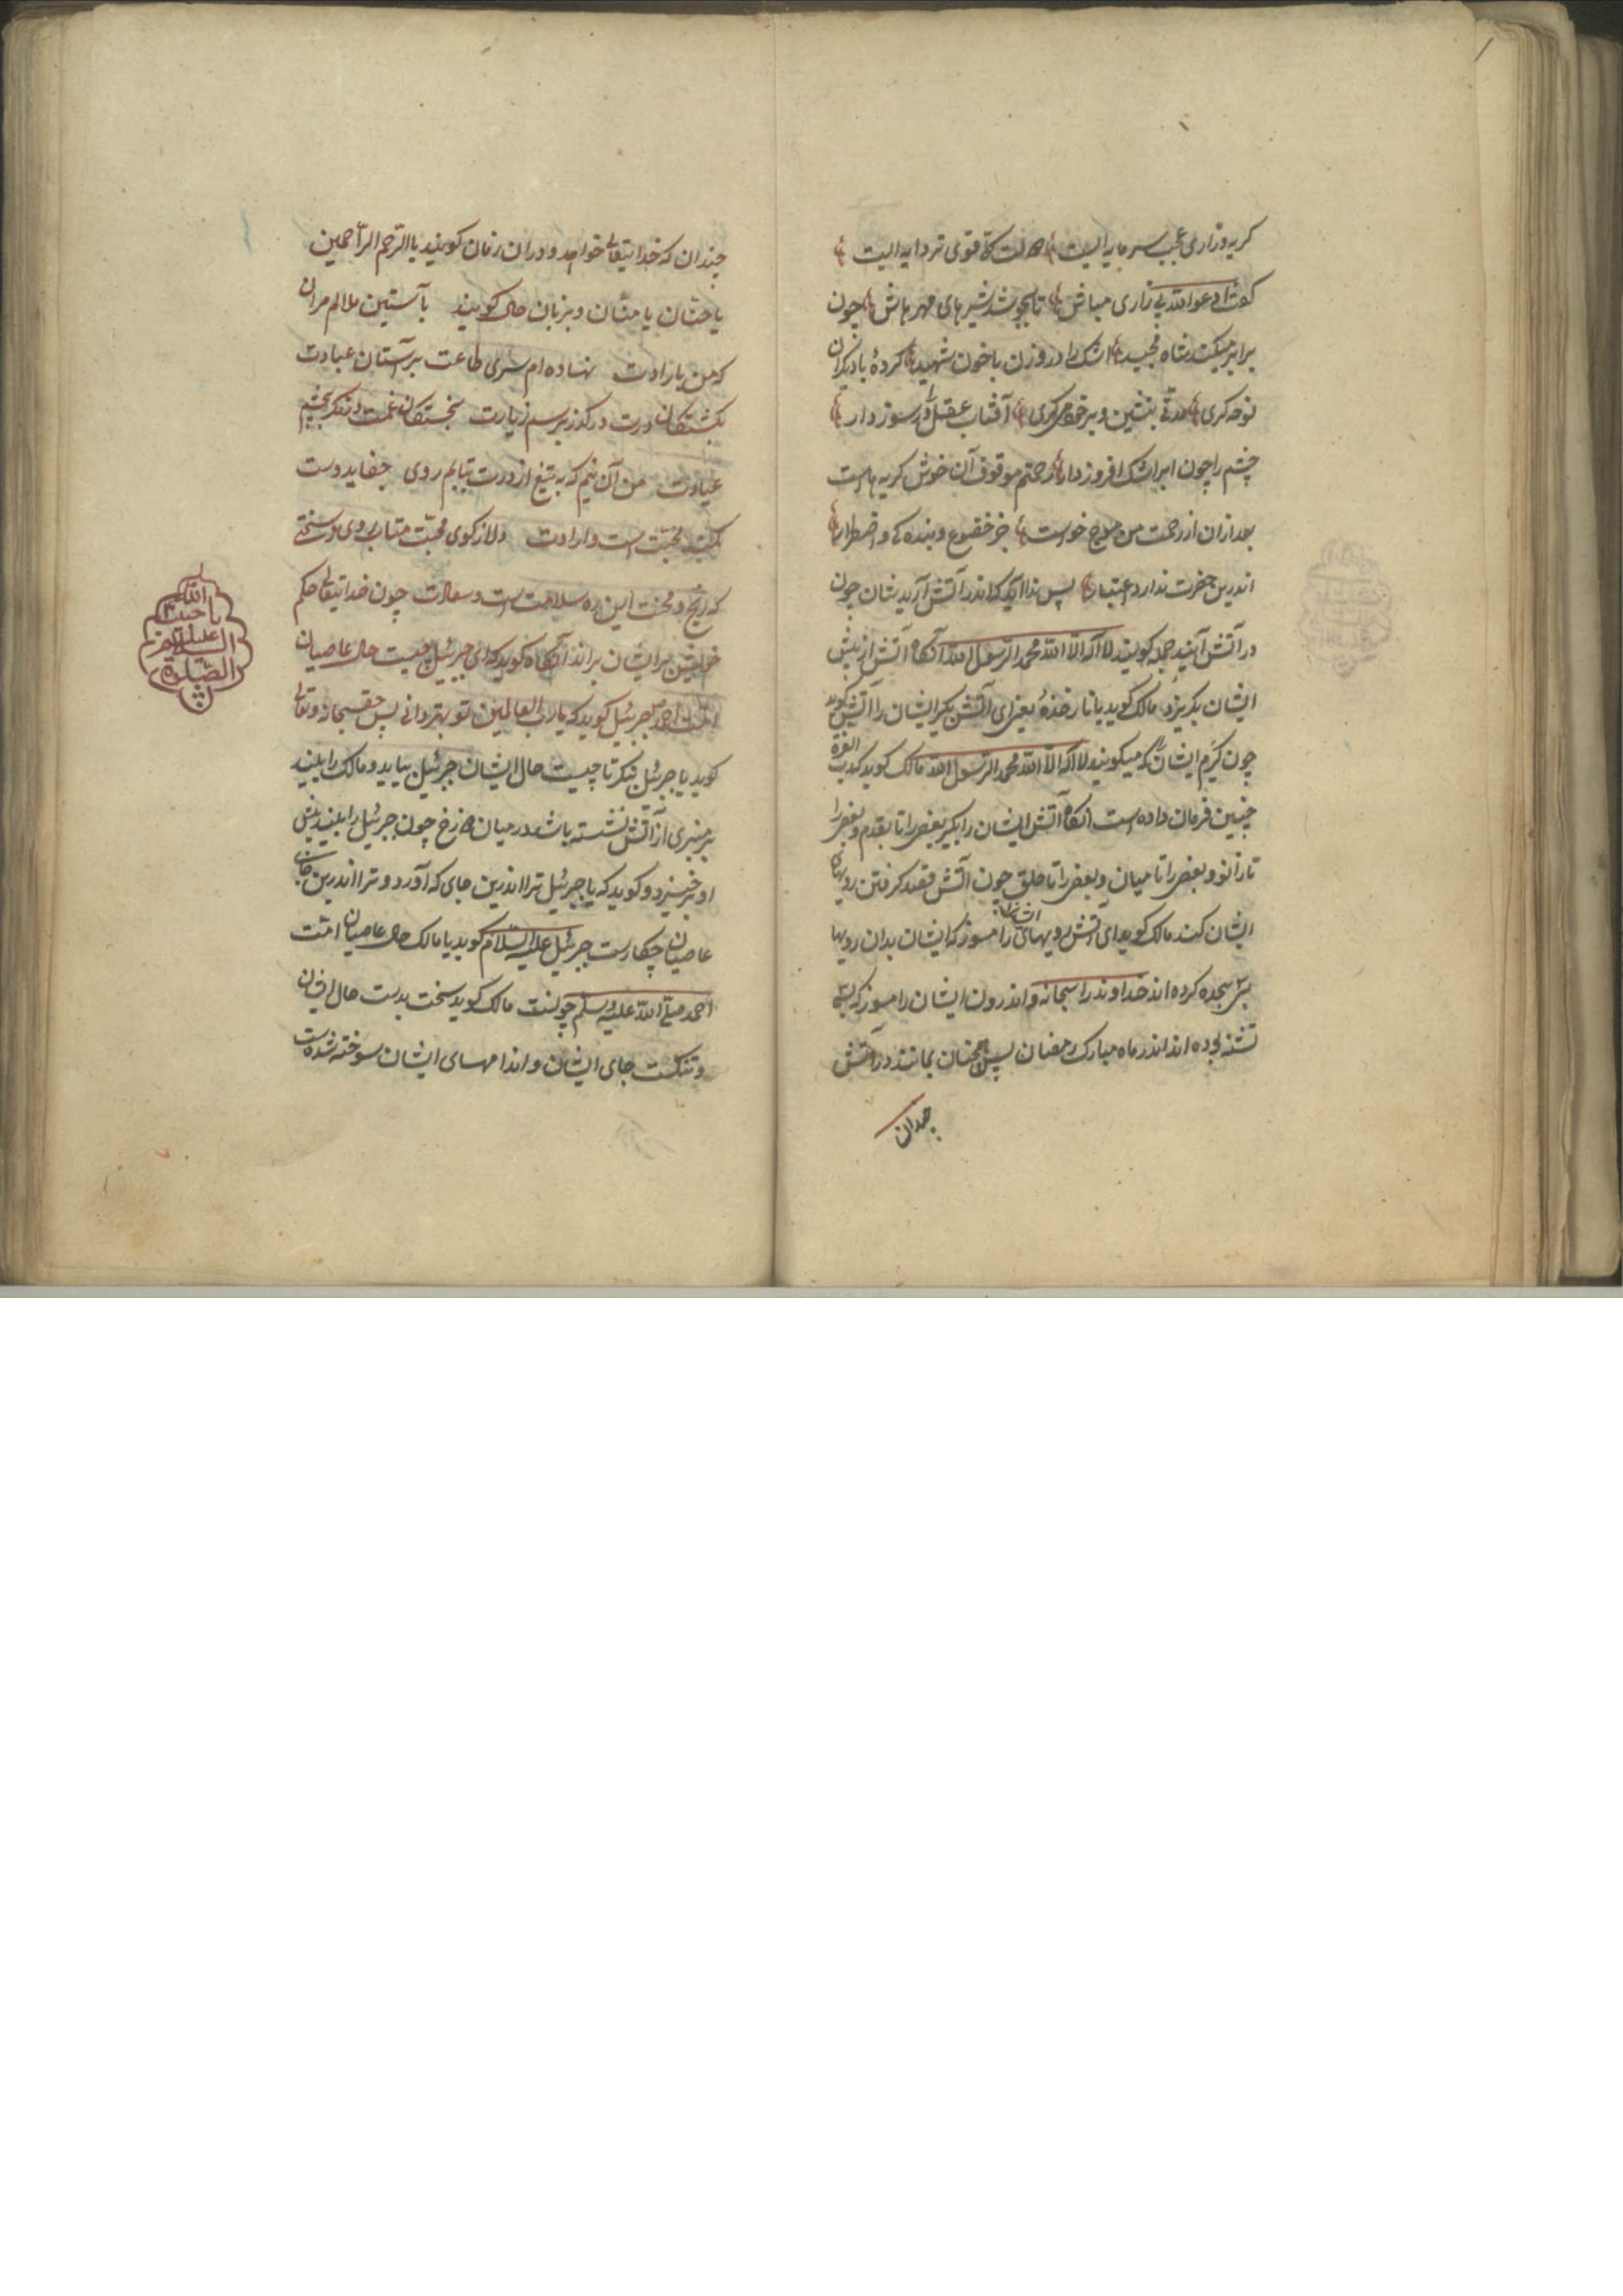 کریه وزاری عجب سرمایه ایست رحمت کلی قوی تر دایه ایست
گفت ادعوا الله بی زاری مباش تا بجوشد شیرهای مهرهاش چون
برابر میکند شاه مجید اشک را در وزن با خون شهید کردهٔ با دیکران
نوحه کری مدتی بنشین و بر خود می کری آفتاب عقل را در سوز دار
چشم را چون ابر اشک افروز دار رحمتم موقوف آن خوش کریه هاست
بعد ازان از رحمت من موج خواست جز خضوع و بنده کی و اضطرار
اندرین حضرت ندارد اعتبار پس ندا آید که اندر آتش آرید شان چون
در آتش آیند جمله کویند لا اله الا الله محمد الرسول الله آنکاه آتش از پیش
ایشان بکریزد مالک کوید یا نار خذهٔ یعنی ای آتش بکیر ایشان را آتش کوید
چون کیرم ایشان را که میکویند لا اله الا الله محمد الرسول الله مالک کوید که رب العزة
چنین فرمان داده است آنکاه آتش ایشان را بکیرد بعضی را تا بقدم و بعضی را
تا زانو و بعضی را تا میان و بعضی را تا حلق چون آتش قصد کرفتن رویهای
ایشان کند مالک کوید ای آتش رویهای ایشانرا مسوز که ایشان بدان رویها
سجده کرده اند خداوند را سبحانه و اندرون ایشان را مسوز که
تشنه بوده اند اندر ماه مبارک رمضان پس همچنان بمانند در آتش
چندان
چندان که خدایتعالی خواهد و دران زمان کویند یا ارحم الراحمین
یا حنان یا منان و بزبان حال کویند بآستین ملالم مران
که من بارادت نهاده ام سری طاعت بر آستان عبادت
بکشتکان درت در کذر برسم زیارت بخستکان غمت در نکر بچشم
عیادت من آن نیم که به تیغ از درت بتابم روی جفاید دوست
کمند محبتست و ارادت دلا ز کوی محبت متاب روی بسختی
که رنج و محنت این ره سلامتست و سعادت چون خدایتعالی حکم
خویش بر ایشان براند آنکاه کوید که ای جبرئیل چیست حال عاصیان
امت احمد جبرئیل کوید که یا رب العالمین تو بهتر دانی پس حق سبحانه و تعالی
کوید یا جبرئیل بنکر تا چیست حال ایشان جبرئیل بیاید و مالک را بیند
بر منبری از آتش نشسته باشد در میان دوزخ چون جبرئیل را بیند پیش
او برخیزد و کوید که یا جبرئیل ترا اندرین جای که آورد و ترا اندرین جای
عاصیان چکارست جبرئیل علیه السلام کوید یا مالک حال عاصیان امت
احمد صلی الله علیه وسلم چونست مالک کوید سخت بدست حال ایشان
و تنکست جای ایشان و اندامهای ایشان سوخته شده است
الله
یا حبیب
علیک
السلام
الصلوة